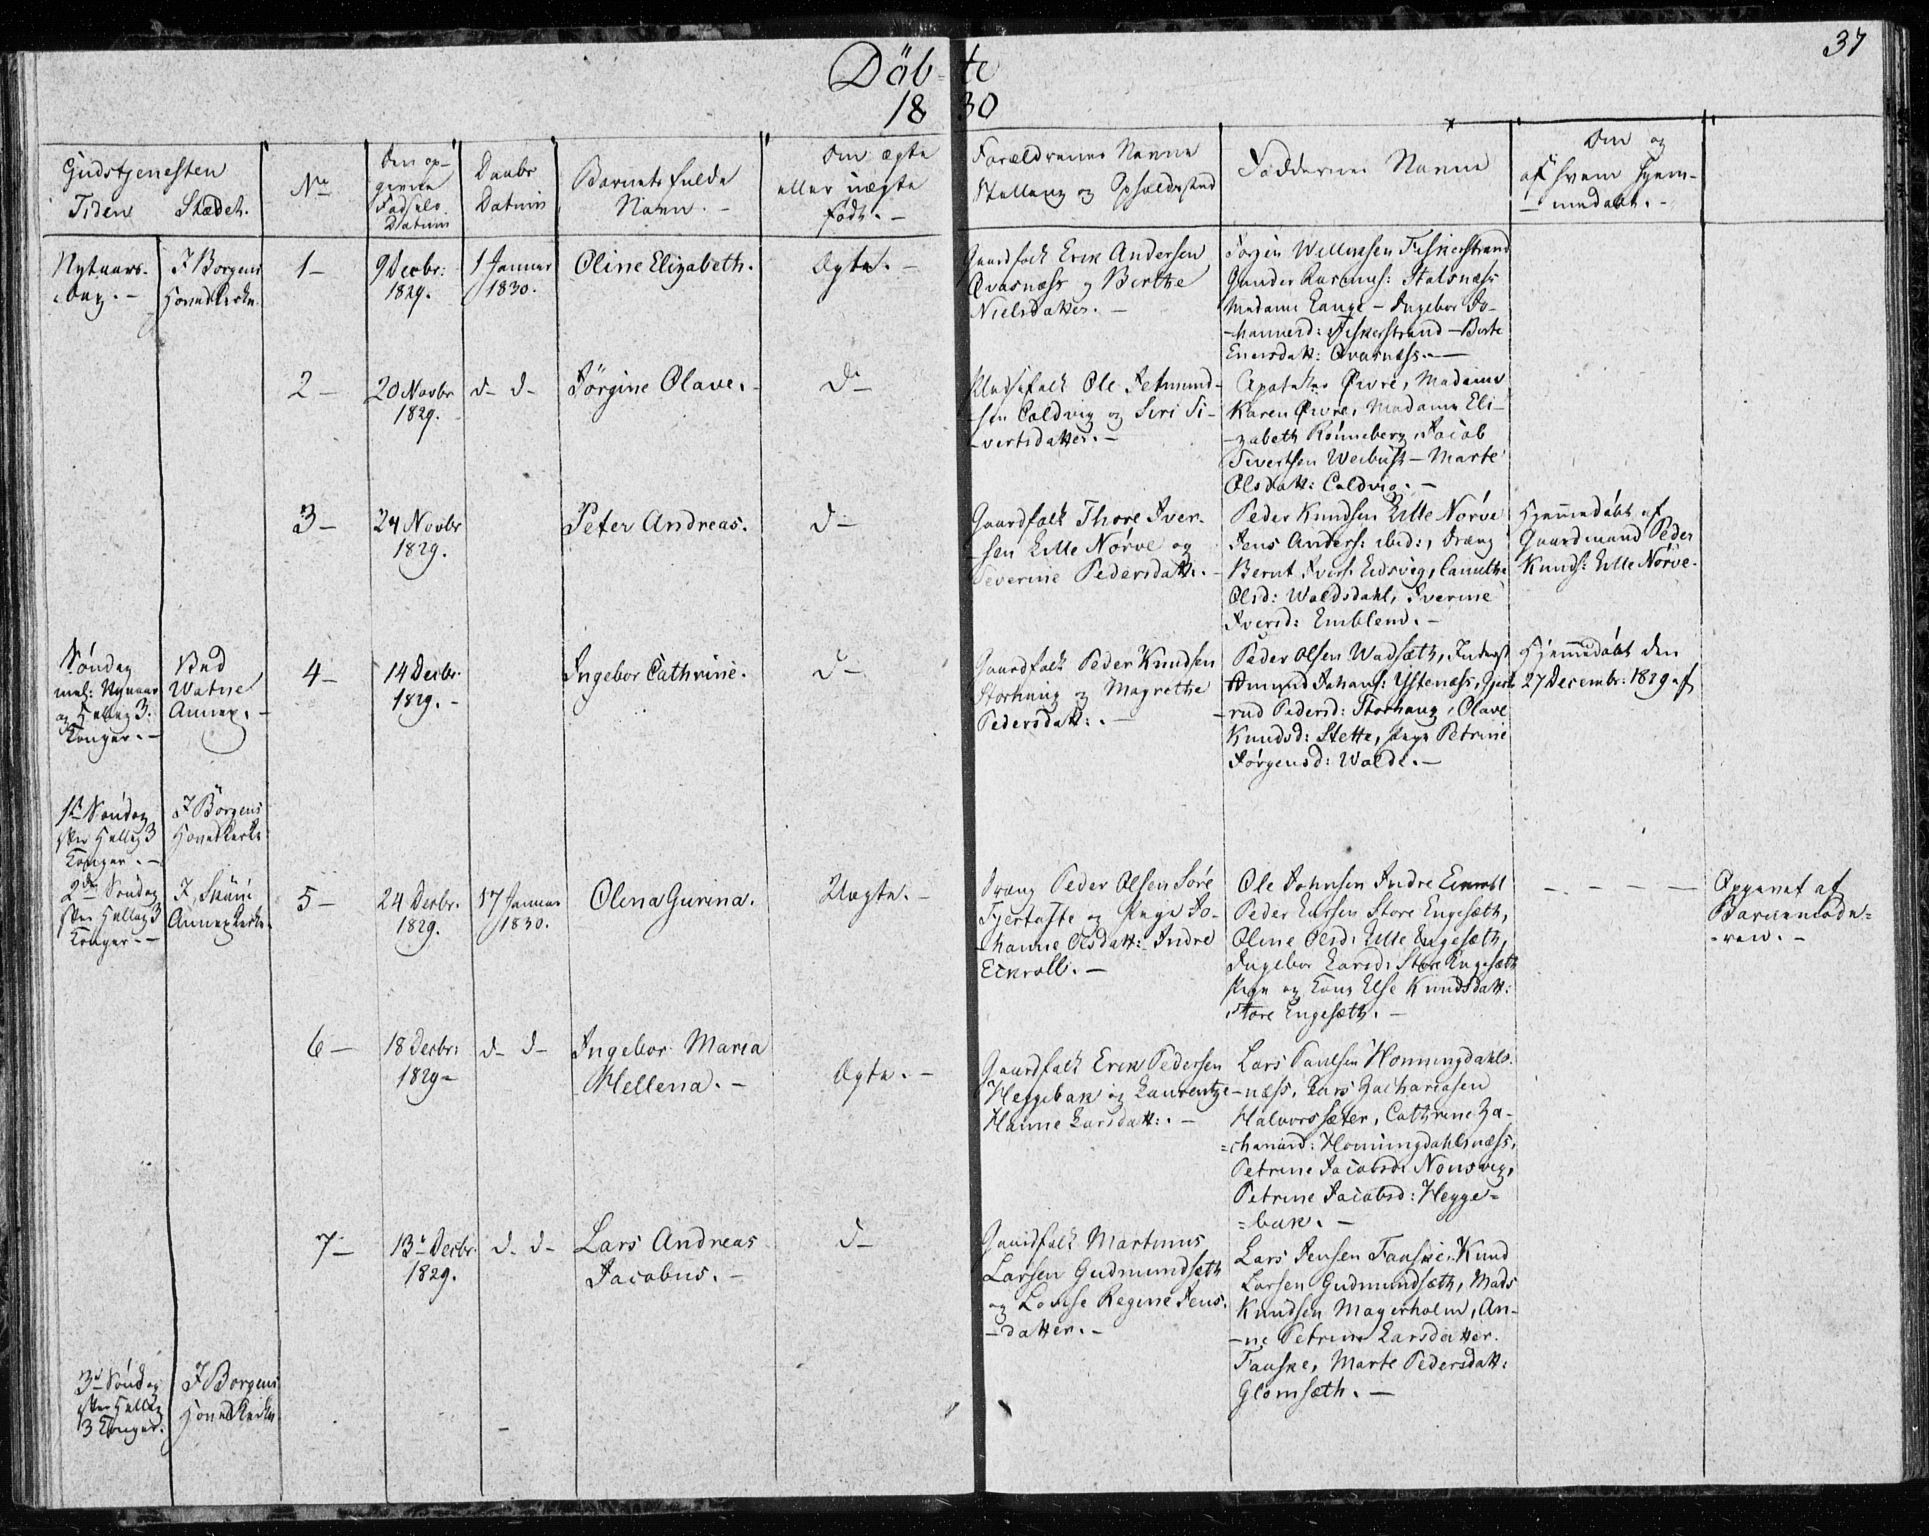 37
Döbte
1830
Gudstjenesten
Tiden Stædet.
No
Den op-
givne
Fødsels
Datum
Daabs
Datum
Barnets fulde
Navn. -
Om ægte
eller uægte
født. -
Forældrenes Navne
Stilling og Opholdssted
Faddernes Navne
Om og
af hvem hjem-
medøbt. -
Nytaars-
dag. -
I Borgens
Hovedkirke.
1-
9 Decbr:
1829.
1 Januar
1830.
Oline Elizabeth.
Ægte. -
Gaardfolk Erik Andersen
Qvasnæss og Birthe
Nielsdatter. -
Jørgen Willumsen Fiskerstrand
Gunder Rasmus: Stalsnæss
Madame Lange - Ingebor Jo-
-hannesd: Fiskerstrand - Berte
Enersdatt: Qvasnæss. -
2-
20 Novbr
1829.
d- d-
Jörgine Olave. -
d-
Pladsefolk Ole Jetmund-
-sen Caldvig og Siri Si-
-vertsdatter. -
Apotheker Öwre, Madame
Karen Öwre, Madame Eli-
-zabeth Rönneberg, Jacob
Sivertsen Weibust - Marte
Olsdatt: Caldvig. -
3-
24 Novbr
1829.
Peter Andreas.
d-
Gaardfolk Thore Iver-
-sen Lille Nörve og
Severine Pedersdatt. -
Peder Knudsen Lille Nörve
Jens Anders: ibid:, Dreng
Bernt Ivers. Eidsvig, Canutha
Olsd: Waldsdahl, Iverine
Iversd: Emblem. -
Hjemmedöbt af
Gaardmand Peder
Knuds: Lille Nörve.
Söndag
mel: Nytaar
og Hellig 3.
Konger. -
Ved
Watne
Annex. -
4-
14 Decbr.
1829. -
Ingebor Cathrine.
d-
Gaardfolk Peder Knudsen
Storhaug og Magrethe
Pedersdatt:. -
Peder Olsen Wadsæth, Inderst
Amund Johans: Ystenæss, Gjert-
-rud Pedersd: Storhaug, Olave
Knudsd: Stette, Pige Petrine
Jörgensd: Walde. -
Hjemmedöbt den
27 Decembr: 1829 af
1ste Söndag
efter Hellig 3
Konger. -
I Borgens
Hovedkirke
2den Söndag
efter Hellig 3
Konger. -
I Skåue
Annexkirke.
5-
24 Decbr.
1829.
17 Januar
1830.
Olena Gurina.
Uægte. -
Dreng Peder Olsen Söre
Fjertofte og Pige Jo-
-hanne Olsdatt: Indre
Eikroll. -
Ole Johnsen Indre Eikroll
Peder Larsen Store Engesæth,
Oline Olsd: Lille Engesæth,
Ingebor Larsd: Store Engesæth
Pige og Kone Else Knudsdatt:
Store Engesæth. -
- - - -
Opgivet af
Barnemode-
-ren. -
6-
18 Decbr:
1829-
d- d-
Ingebor Maria
Hellena. -
Ægte. -
Gaardfolk Erik Pedersen
Heggebak og Laurentze
Hanne Larsdatt:. -
Lars Paulsen Honningdahls-
-næss, Lars Zachariasen
Halvorssæter, Cathrine Za-
-chariasd: Honningdahlsnæss,
Petrine Jacobsd: Nonsvig,
Petrine Jacobsd: Hegge-
-bak. -
7-
13de Decbr.
1829.
d- d-
Lars Andreas
Jacobus. -
d-
Gaardfolk Martinus
Larsen Gudmundsæth
og Lovise Regine Jens-
-datter. -
Lars Jensen Fauske, Knud
Larsen Gudmundsæth, Mads
Knudsen Magerholm, An-
-ne Petrine Larsdatter
Fauske, Marte Pedersdatt:
Glomsæth. -
3die Söndag
efter Hellig
3 Konger.
I Borgens
Hovedkirke.